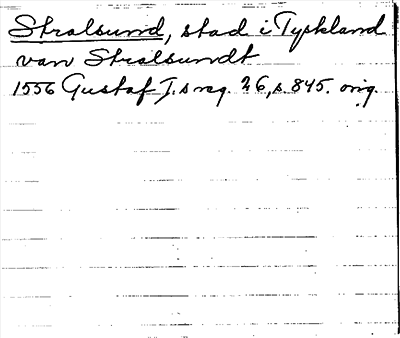 Stralsund, stad i Tyskland
van Stralsundt
1556 Gustaf I:s reg. 26, s. 845. orig.